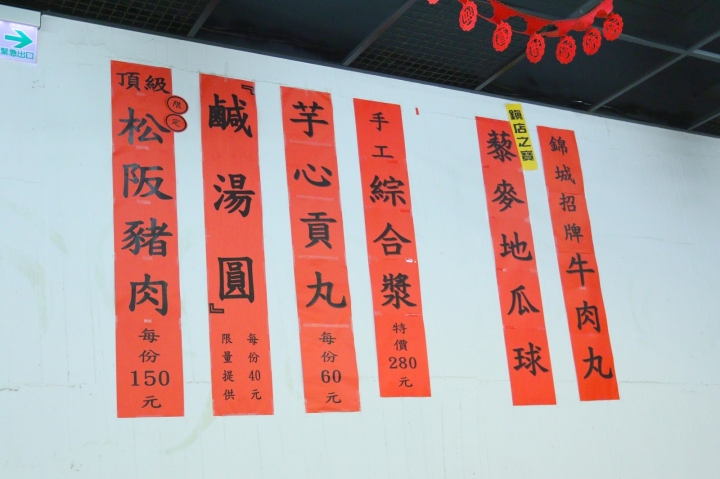 緊急出口
頂級
限定
松阪豬肉
每份
150
元
『鹹湯圓』
每份40元
限量提供
芋心貢丸
每份
60
元
手工
綜合漿
特價
280
元
鎮店之寶
藜麥地瓜球
錦城招牌
牛肉丸